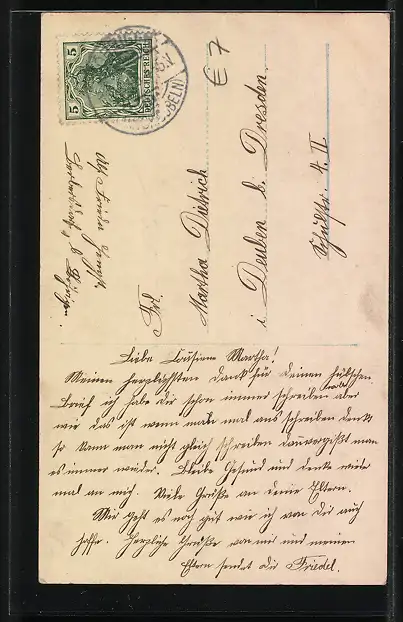 5 5
DEUTSCHES REICH
(DÖBELN)
€ 7
Frl.
Martha Dietrich
i. Deuben b. Dresden.
Schulstr. 4. II
Abs. Frieda
Liebe Cousiene Martha!
Meinen herzlichsten Dank für deinen hübschen
Brief ich habe dir schon immer schreiben aber
wie das ist wenn mal ans schreiben denkt
so kann man nicht gleich schreiben dan vergißt man
es immer wieder. Bleibe Gesund und denke viele
mal an mich. Viele Grüße an deine Eltern.
Mir geht es noch gut wie ich von dir auch
hoffe. Herzliche Grüße von mir und meinen
Eltern sendet dir Friedel.